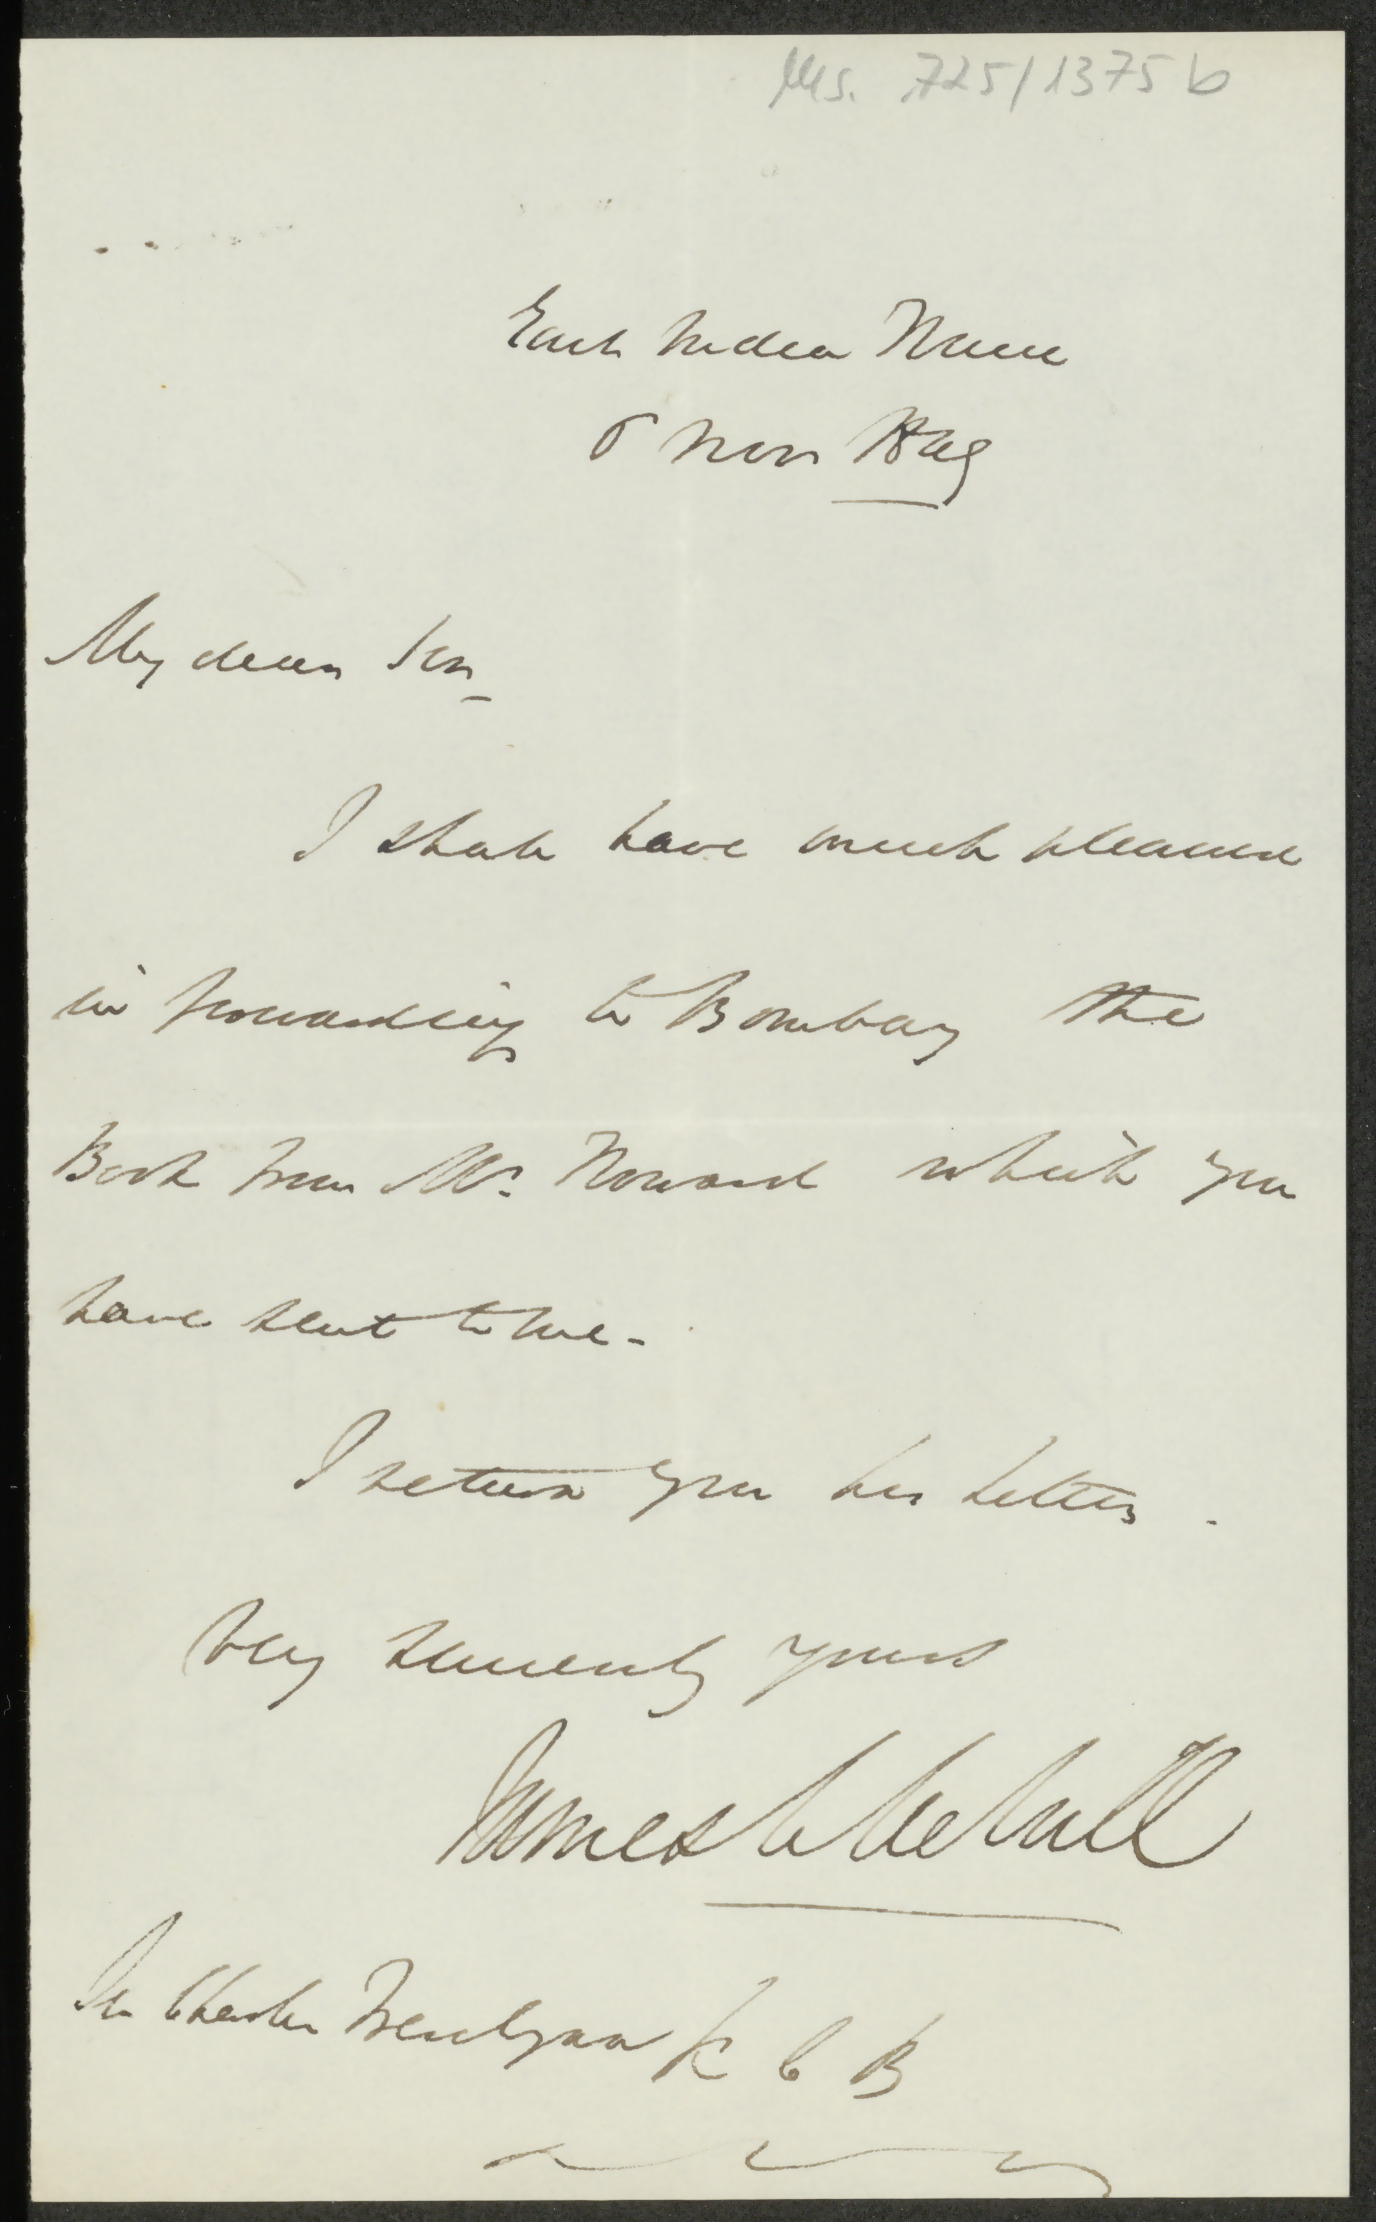 Ms. 725/1375 b
East India House
6 Nov 1849
My dear Sir
I shall have much pleasure
in forwarding to Bombay the
Book from Mr. Howard which you
have sent to me -
I return you his letter .
Very sincerely yours
James C Melvill
Sir Charles Trevelyan K C B